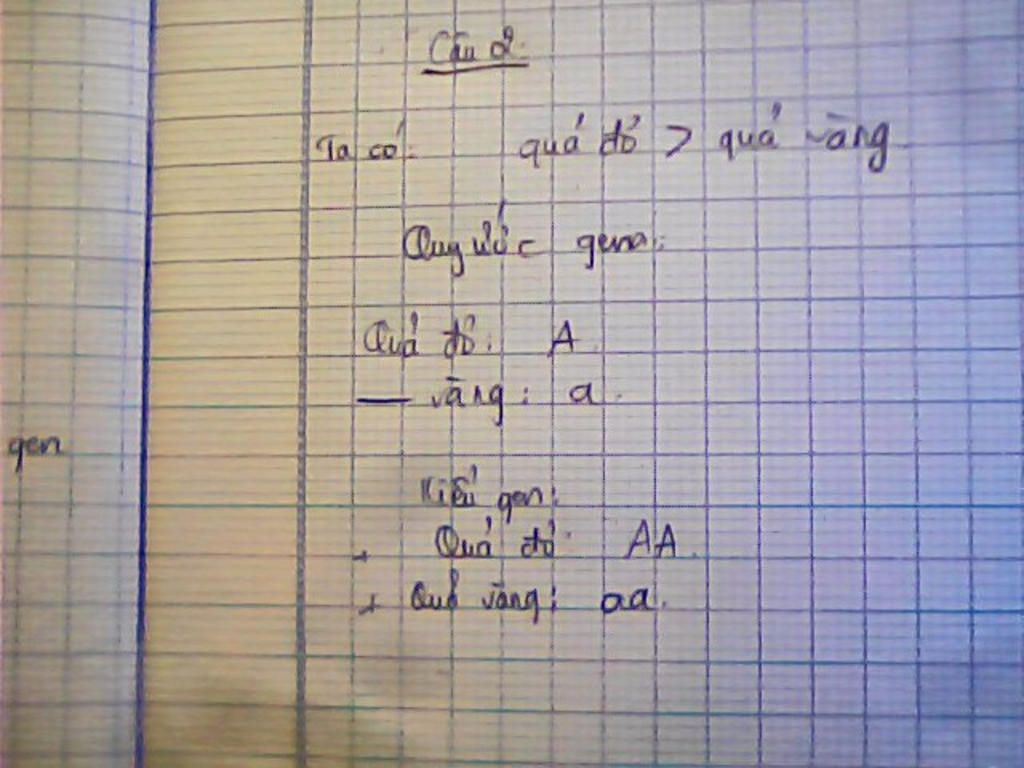 Câu 2.
Ta có: quả đỏ > quả vàng
Quy ước gen:
Quả đỏ: A.
— vàng: a.
gen
Kiểu gen:
+ Quả đỏ: AA.
+ Quả vàng: aa.